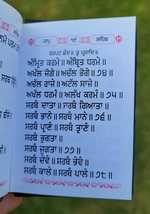 ਅੰਮ੍ਰਿਤ ਕਰਮੇ ॥ ਅੰਮ੍ਰਿਤ ਧਰਮੇ ॥
ਅਖੱਲ ਜੋਗੇ ॥ ਅਚੱਲ ਭੋਗੇ ॥ ੭੪ ॥
ਅਚੱਲ ਰਾਜੇ ॥ ਅਟੱਲ ਸਾਜੇ ॥
ਅਖੱਲ ਧਰਮੰ ॥ ਅਲੱਖ ਕਰਮੰ ॥ ੭੫ ॥
ਸਰਬੰ ਦਾਤਾ ॥ ਸਰਬੰ ਗਿਆਤਾ ॥
ਸਰਬੰ ਭਾਨੇ ॥ ਸਰਬੰ ਮਾਨੇ ॥ ੭੬ ॥
ਸਰਬੰ ਪ੍ਰਾਣੰ ॥ ਸਰਬੰ ਤ੍ਰਾਣੰ ॥
ਸਰਬੰ ਭੁਗਤਾ ॥
ਸਰਬੰ ਜੁਗਤਾ ॥ ੭੭ ॥
ਸਰਬੰ ਦੇਵੰ ॥ ਸਰਬੰ ਭੇਵੰ ॥
ਸਰਬੰ ਕਾਲੇ ॥ ਸਰਬੰ ਪਾਲੇ ॥ ੭੮ ॥